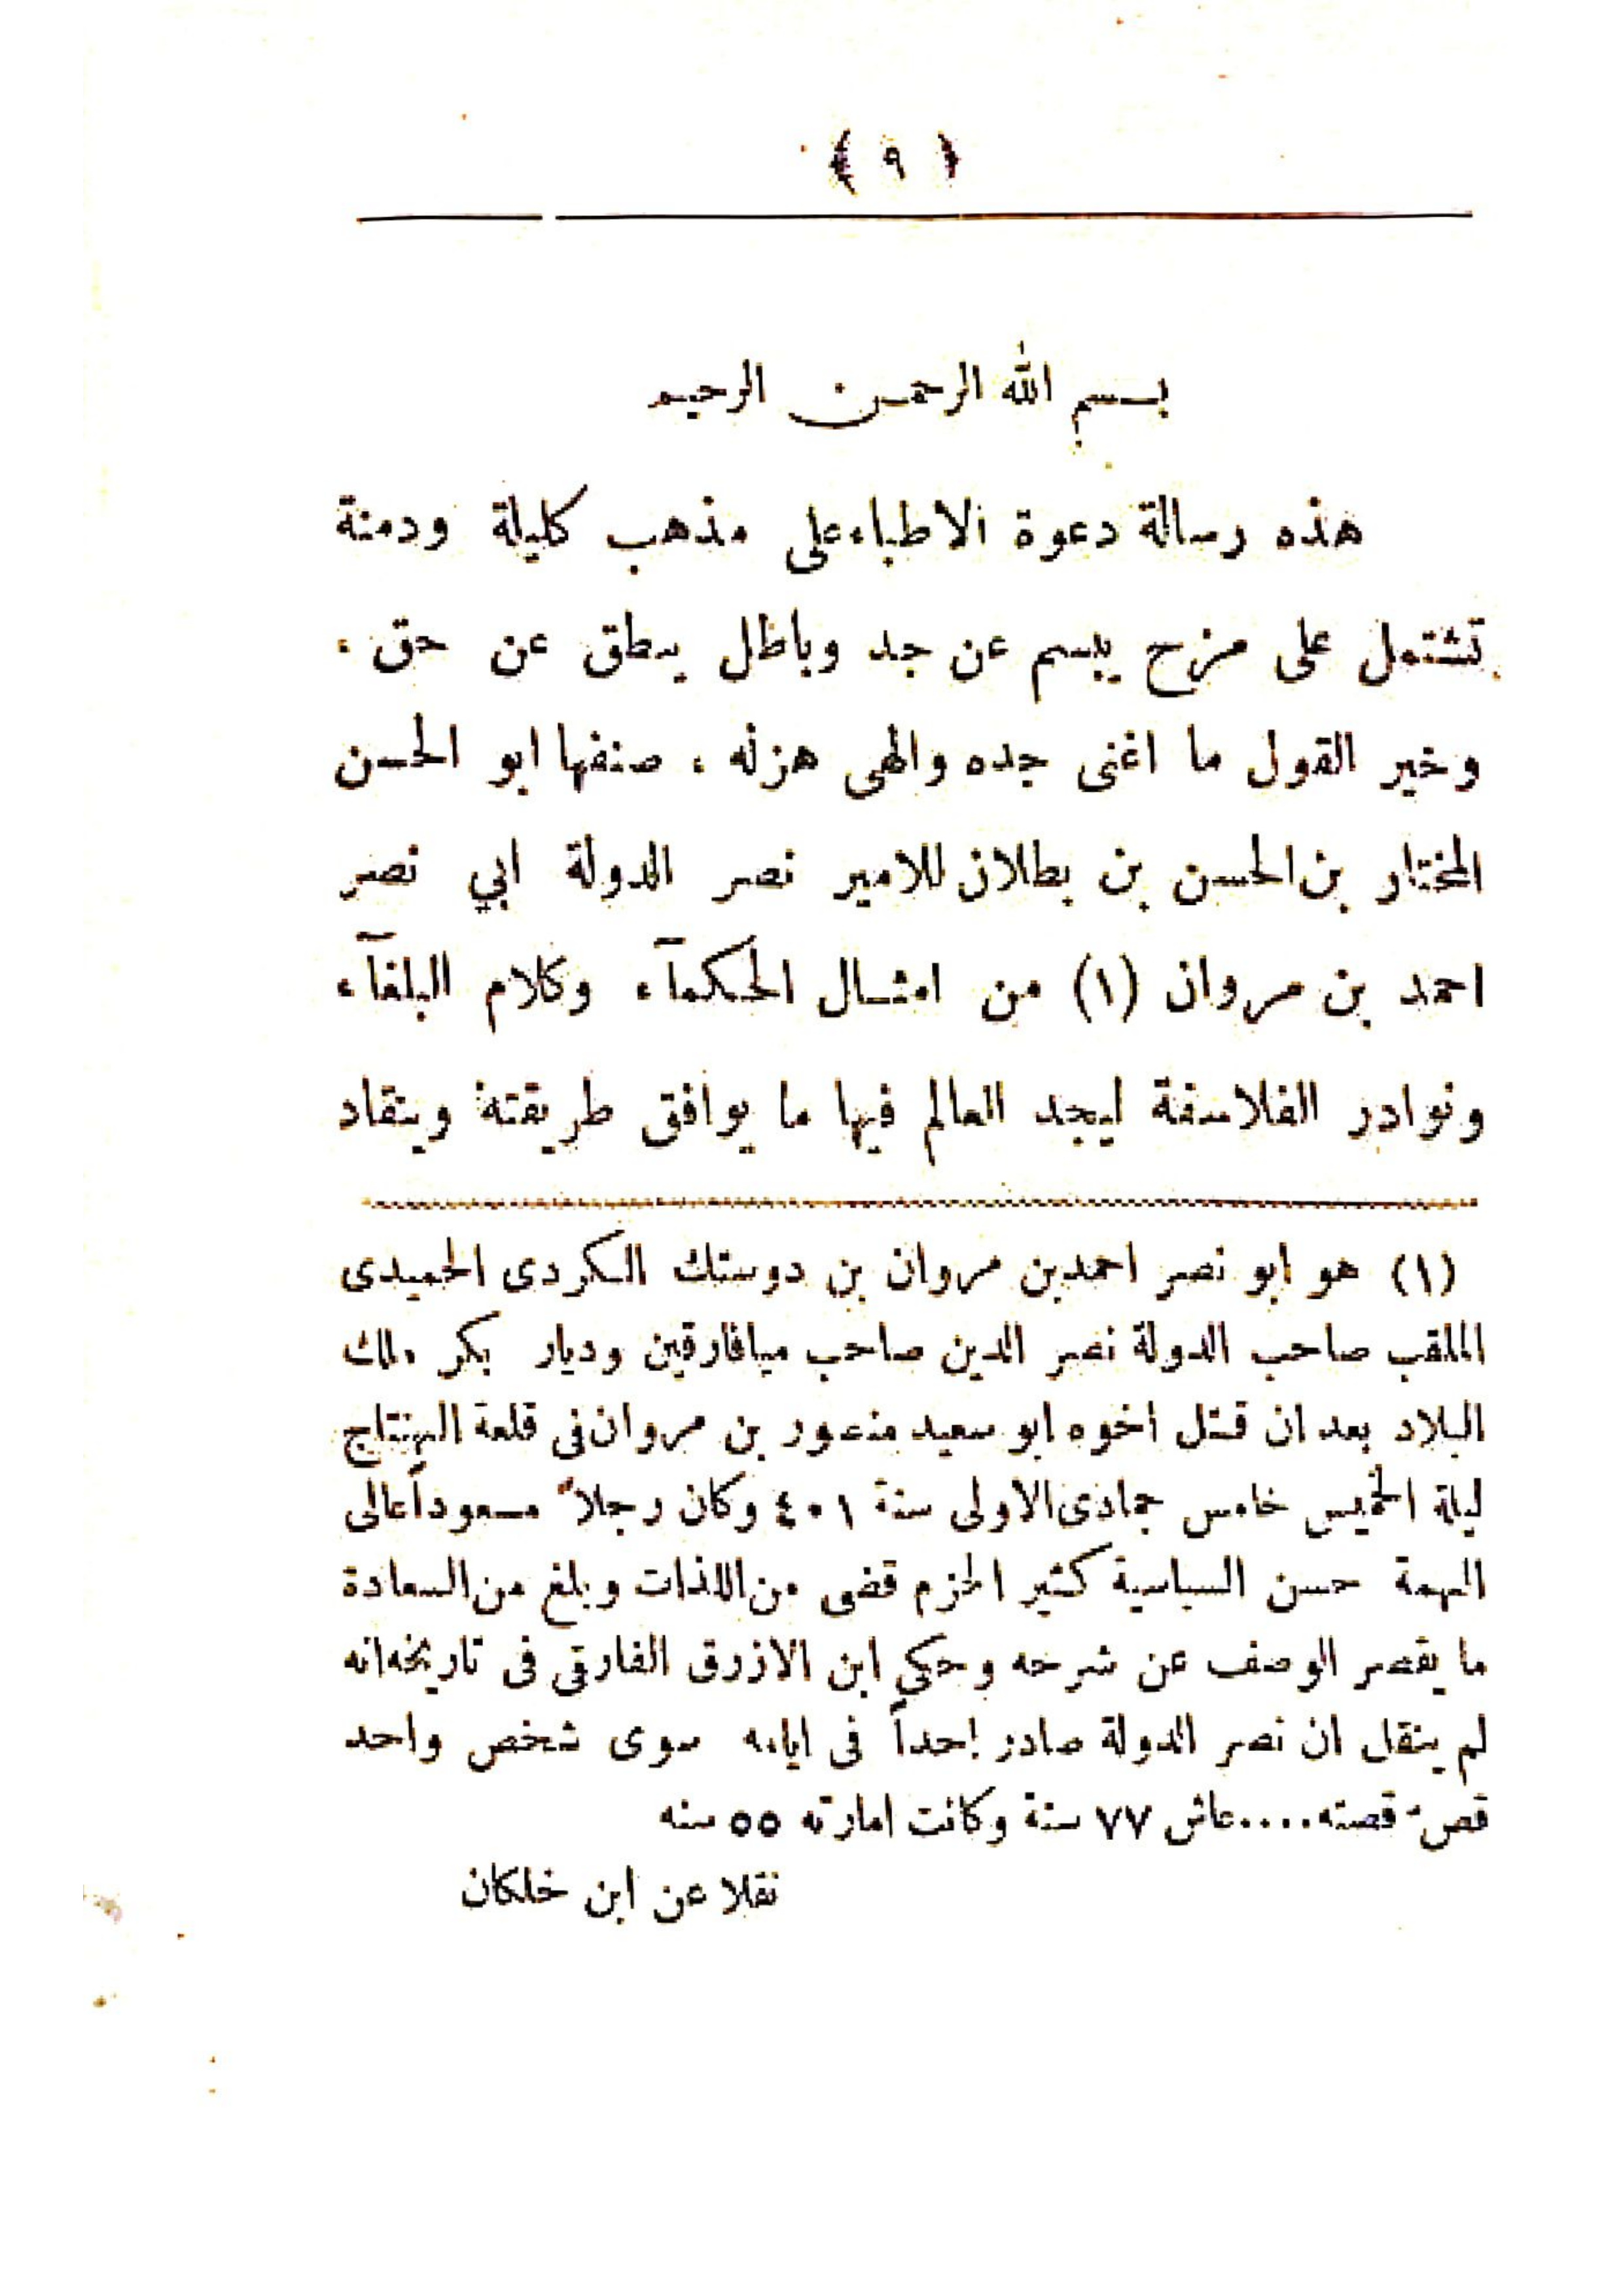 ﴿ ٩ ﴾
بسم الله الرحمن الرحيم
هذه رسالة دعوة الاطباء على مذهب كليلة ودمنة
تشتمل على مزح يبسم عن جد وباطل ينطق عن حق ،
وخير القول ما اغنى جده والهى هزله ، صنفها ابو الحسن
المختار بن الحسن بن بطلان للامير نصر الدولة ابي نصر
احمد بن مروان (١) من امثال الحكمآء وكلام البلغآء
ونوادر الفلاسفة ليجد العالم فيها ما يوافق طريقته وينقاد
(١) هو ابو نصر احمد بن مروان بن دوستك الكردى الحميدى
الملقب صاحب الدولة نصر الدين صاحب ميافارقين وديار بكر ملك
البلاد بعد ان قتل اخوه ابو سعيد منصور بن مروان فى قلعة الهنتاج
ليلة الخميس خامس جمادى الاولى سنة ٤٠١ وكان رجلاً مسعوداً عالى
الهمة حسن السياسية كثير الحزم قضى من اللذات وبلغ من السعادة
ما يقصر الوصف عن شرحه وحكي ابن الازرق الفارقي فى تاريخه انه
لم ينقل ان نصر الدولة صادر احداً فى ايامه سوى شخص واحد
قصّ قصته....عاش ٧٧ سنة وكانت امارته ٥٥ سنه
نقلا عن ابن خلكان